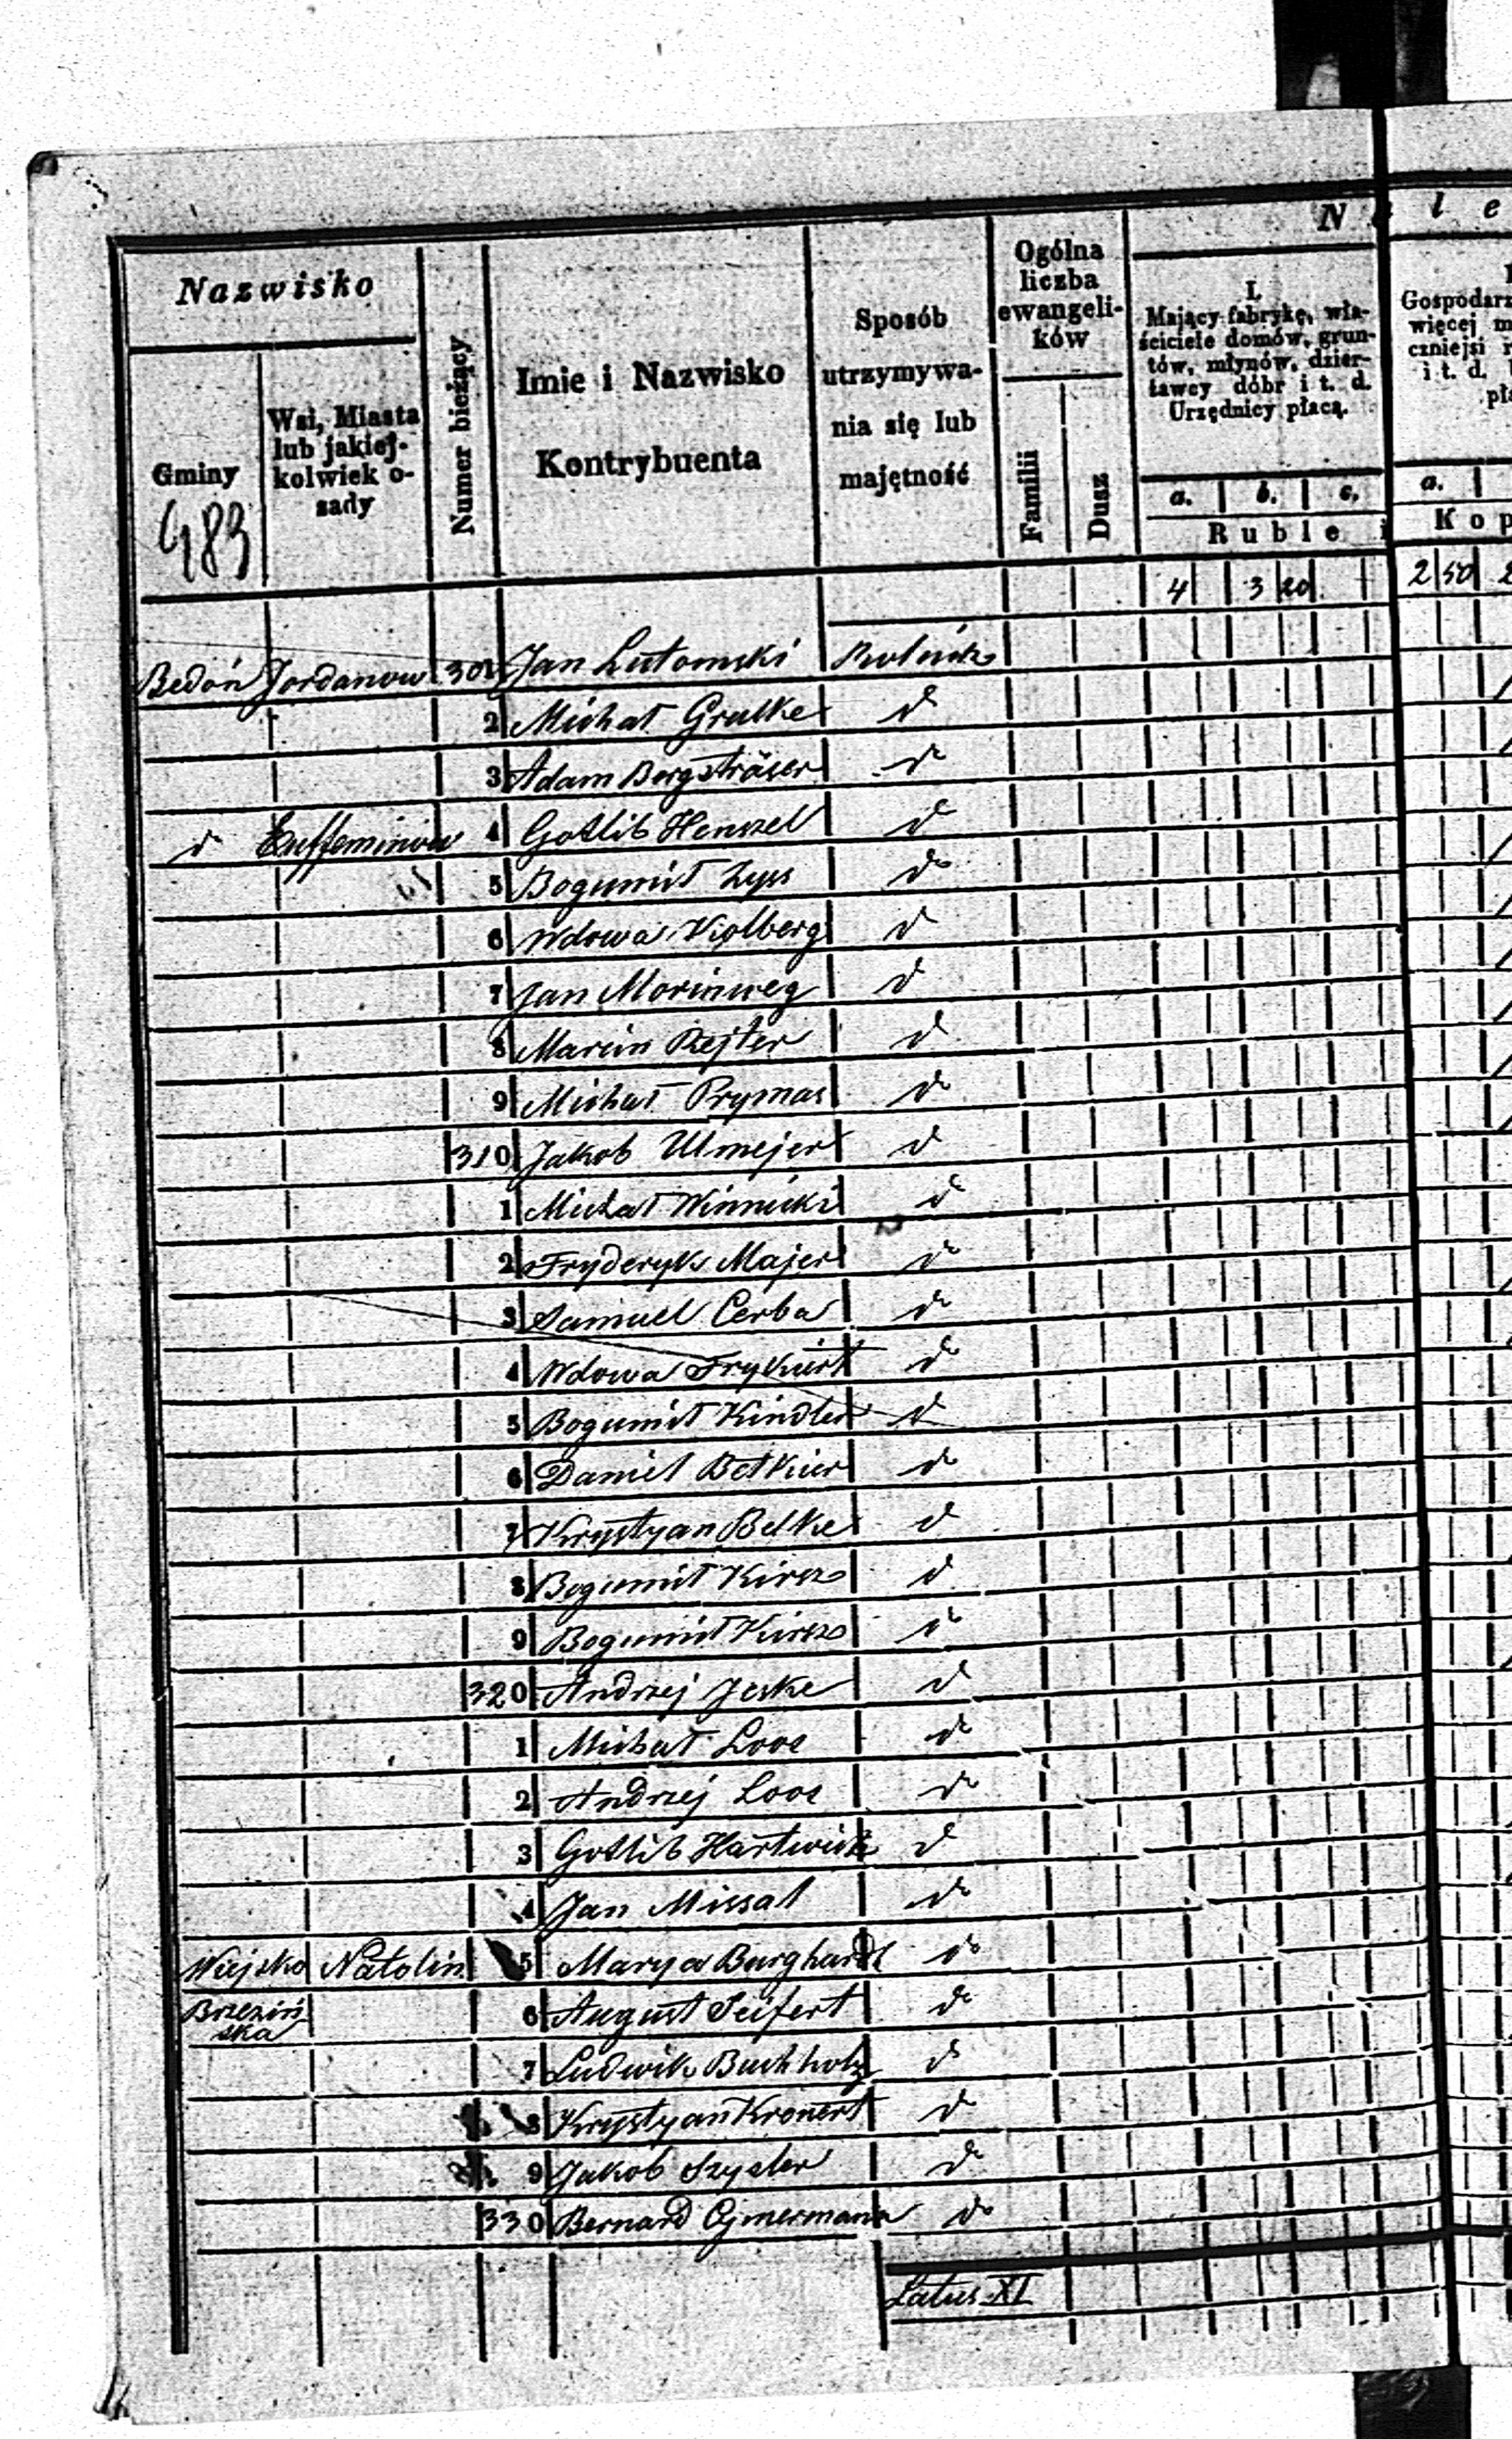 N a l e
Nazwisko
Gminy
483
Wsi, Miasta
lub jakiej-
kolwiek o-
sady
Numer bieżący
Imie i Nazwisko
Kontrybuenta
Sposób
utrzymywa-
nia się lub
majętność
Ogólna
liczba
ewangeli-
ków
Familii
Dusz
I.
Mający fabrykę, wła-
ściciele domów, grun-
tów, młynów, dzier-
żawcy dóbr i t. d.
Urzędnicy płacą.
a. b. c.
Ruble i
Gospodarz
więcej m
czniejsi r
i t. d.
pła
a.
Kop
4 3 20 2 50 2
Bedoń Jordanow 301 Jan Lutomski Rolnik
2 Michał Grulke d
3 Adam Bergsträser d
d Euffeminow 4 Gotlib Henszel d
5 Bogumił Zyss d
6 Wdowa Kolberg d
7 Jan Morinweg d
8 Marcin Rejter d
9 Michał Prymas d
310 Jakob Ulmejer d
1 Michał Winnicki d
2 Fryderyk Majer d
3 Samuel Cerba d
4 Wdowa Frykiert d
5 Bogumił Kindler d
6 Daniel Betkier d
7 Krystyan Belke d
8 Bogumił Kirsz d
9 Bogumił Kirsz d
320 Andrzej Jeske d
1 Michał Loos d
2 Andrzej Loos d
3 Gotlib Hartwick d
4 Jan Missal d
Wiejsko Natolin 5 Marya Burghardt d
Brzeziń
ska 6 August Seifert d
7 Ludwik Buchholz d
8 Krystyan Kronert d
9 Jakob Szysler d
330 Bernard Cymermann d
Latus XI